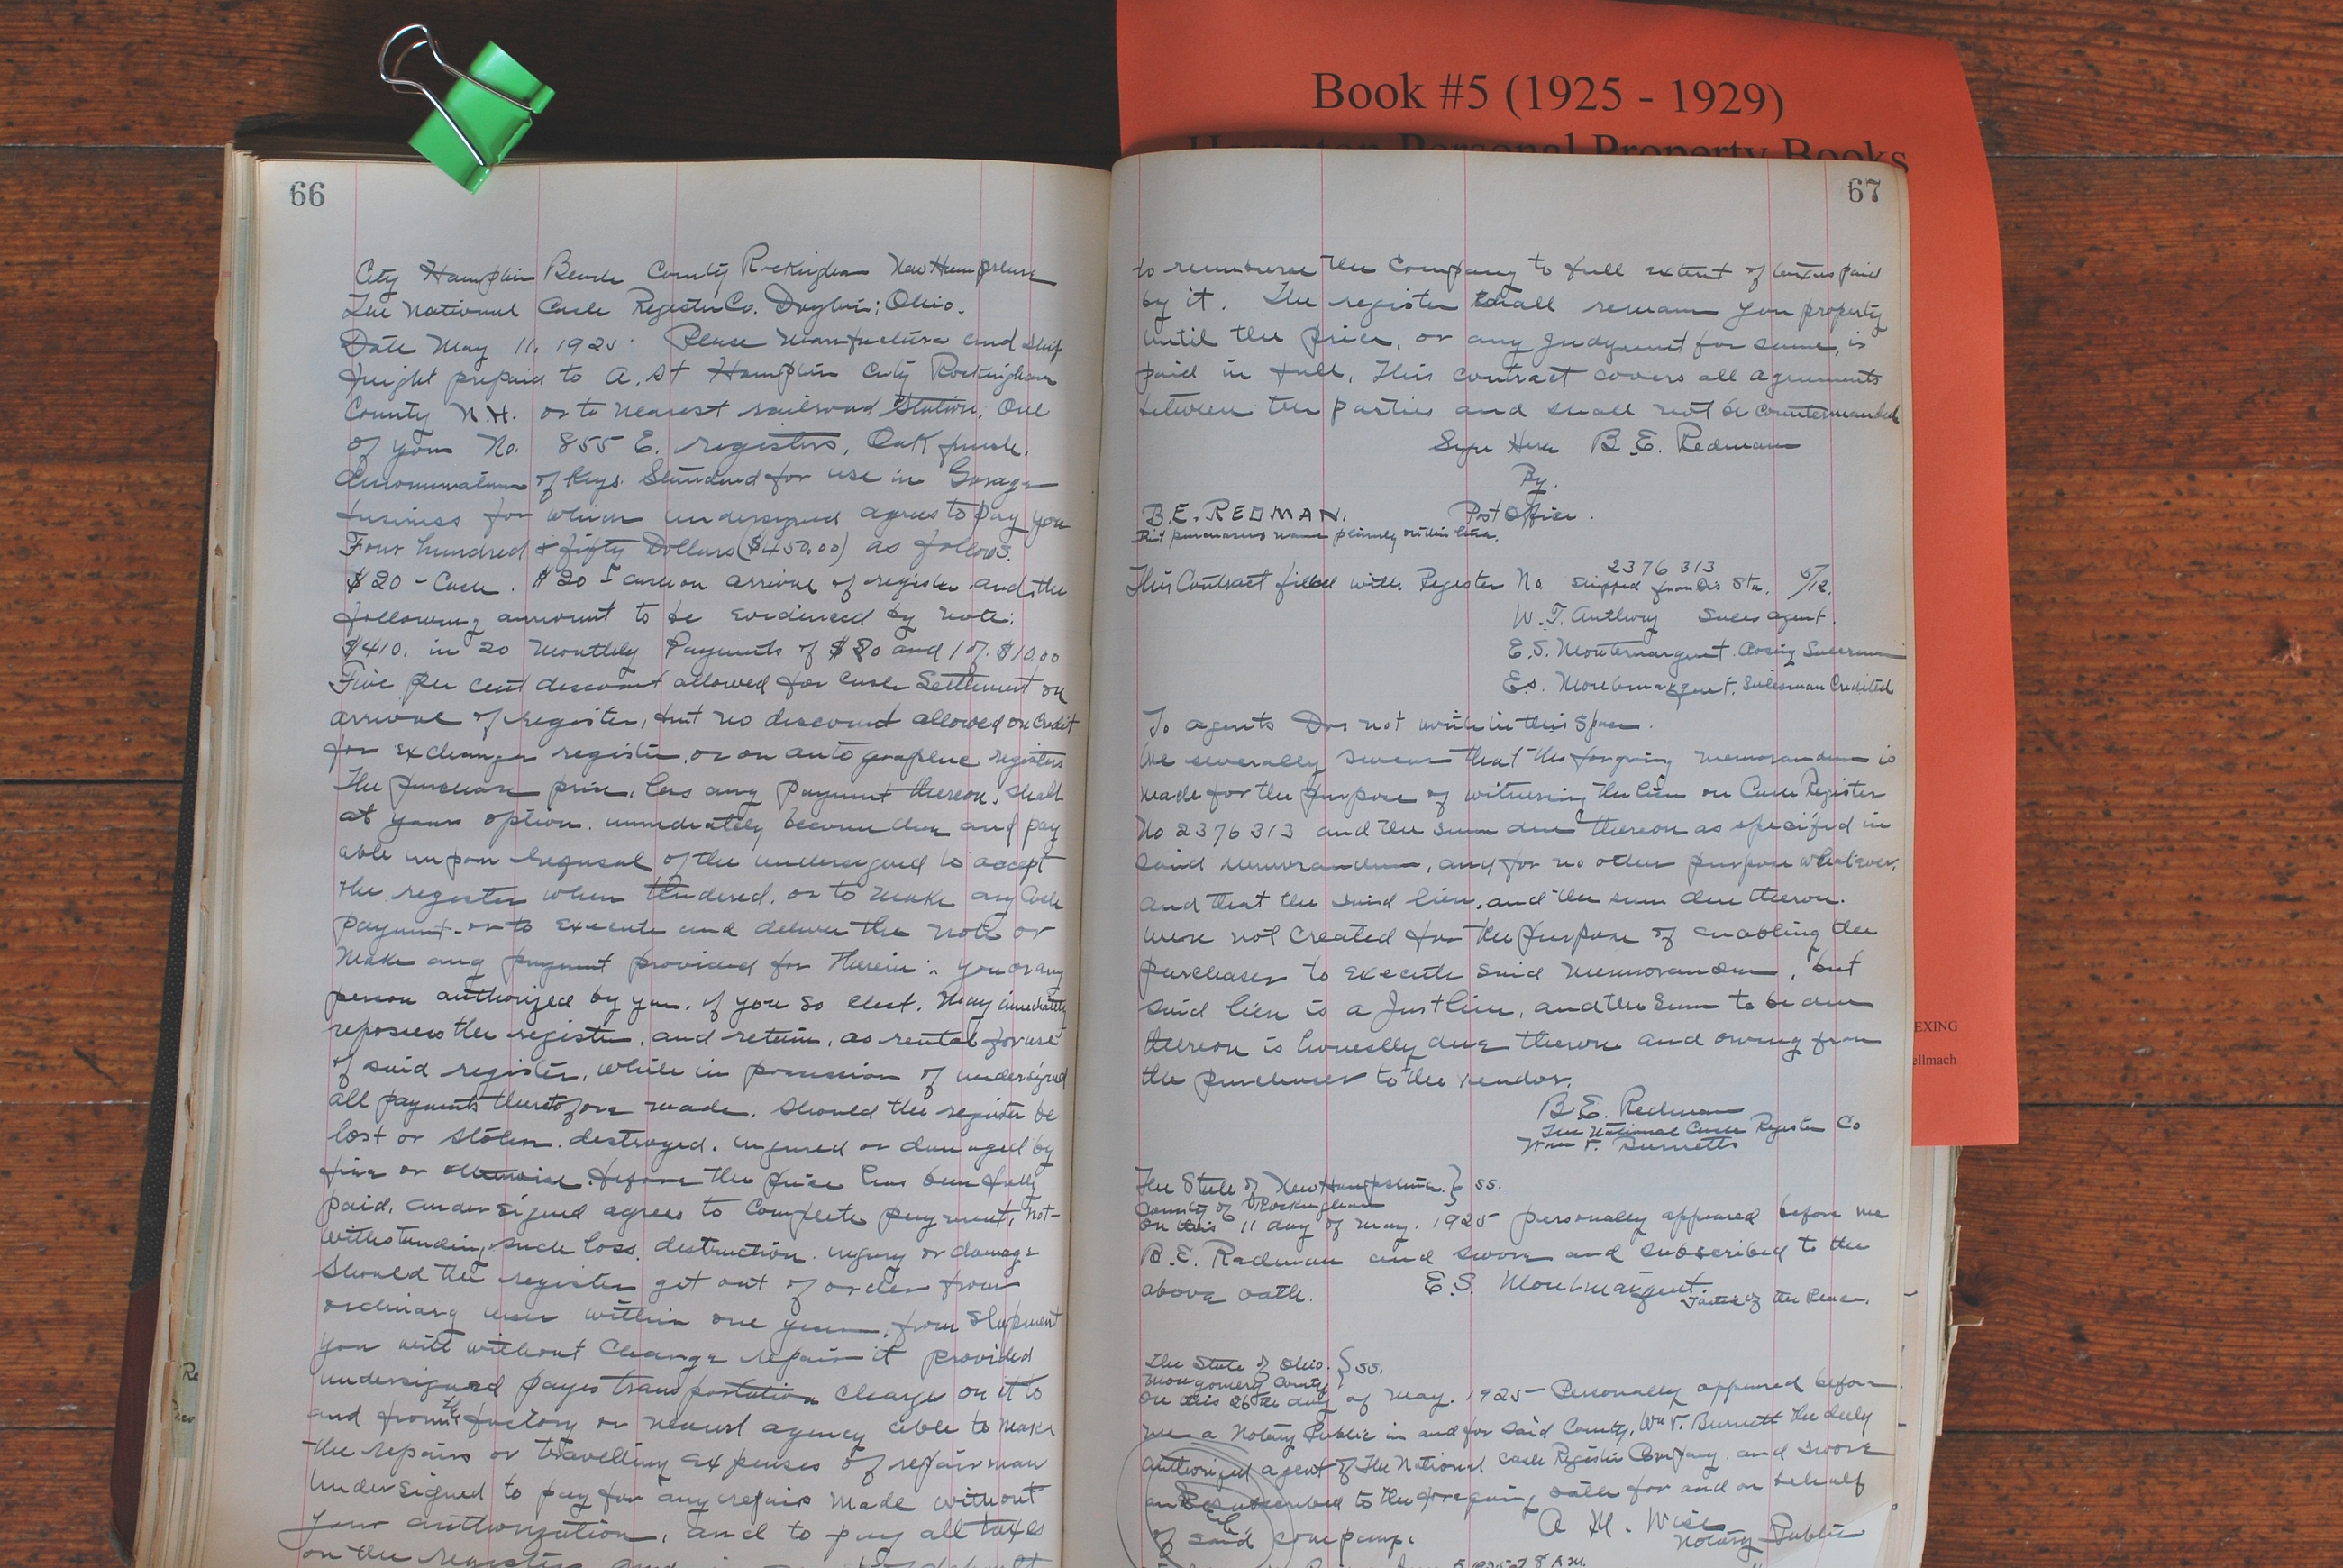 Book #5 (1925 - 1929)
Hampton Personal Property Books
EXING
ellmach
66
City Hampton Beach County Rockingham New Hampshire
The National Cash Register Co. Dayton, Ohio.
Date May 11, 1925. Please manufacture and ship
freight prepaid to A. St Hampton City Rockingham
County N.H. or to nearest railroad station, One
of your No. 855 E. registers, Oak finish.
denomination of keys. Standard for use in Garage
business for which undersigned agrees to pay you
Four hundred & fifty Dollars ($450.00) as follows.
$20 - Cash. $20 cash on arrival of register and the
following amount to be evidenced by note:
$410. in 20 Monthly Payments of $20 and 1 of $10.00
Five per cent discount allowed for cash settlement on
arrival of register, but no discount allowed on credit
for exchange register, or on autographic registers
The purchase price, less any payment thereon, shall
at your option, immediately become due and pay
able upon refusal of the undersigned to accept
the register when tendered, or to make any cash
payment - or to execute and deliver the note or
make any payment provided for therein: you or any
person authorized by you, if you so elect, may immediately
repossess the register, and retain, as rental for use
of said register, while in possession of undersigned
all payments theretofore made. Should the register be
lost or stolen, destroyed, injured or damaged by
fire or otherwise before the price has been fully
paid, undersigned agrees to complete payment, not-
withstanding such loss, destruction, injury or damage
Should the register get out of order from
ordinary use within one year, from shipment
you will without charge repair it provided
undersigned pays transportation charge on it to
and from the factory or nearest agency able to make
the repairs or travelling expenses of repair man
Undersigned to pay for any repairs made without
your authorization, and to pay all taxes
on the register, and
67
to reimburse the Company to full extent of taxes paid
by it. The register shall remain your property
until the price, or any judgment for same, is
paid in full. This contract covers all agreements
between the parties and shall not be countermanded
Sign Here B. E. Redman
By.
B.E. REDMAN. Post Office.
Print purchasers name plainly on this line.
2376313
This Contract filled with Register No. Shipped from Dis Sta. 5/12.
W. T. Anthony Sales agent.
E. S. Montmarquet. Salesman
E. S. Montmarquet, Salesman Credited
To agents Do not write in this space.
We severally swear that the forgoing memorandum is
made for the purpose of witnessing the lien on Cash Register
No 2376313 and the sum due thereon as specified in
said memorandum, and for no other purpose whatever.
and that the said lien, and the sum due thereon.
were not created for the purpose of enabling the
purchaser to execute said memorandum, but
said lien is a just lien, and the sum to be due
thereon is honestly due thereon and owing from
the purchaser to the vendor.
B. E. Redman
The National Cash Register Co
Wm V. Burnetts
The State of New Hampshire } ss.
County of Rockingham
On this 11 day of May. 1925 personally appeared before me
B. E. Redman and swore and subscribed to the
above oath. E. S. Montmarquet
Justice of the Peace.
The State of Ohio. } ss.
Montgomery County
On this 26th day of May. 1925 Personally appeared before
me a Notary Public in and for said County, Wm V. Burnett the duly
authorized agent of The National Cash Register Company. and swore
and subscribed to the foregoing oath for and on behalf
of said company.
A. M. Wise
Notary Public